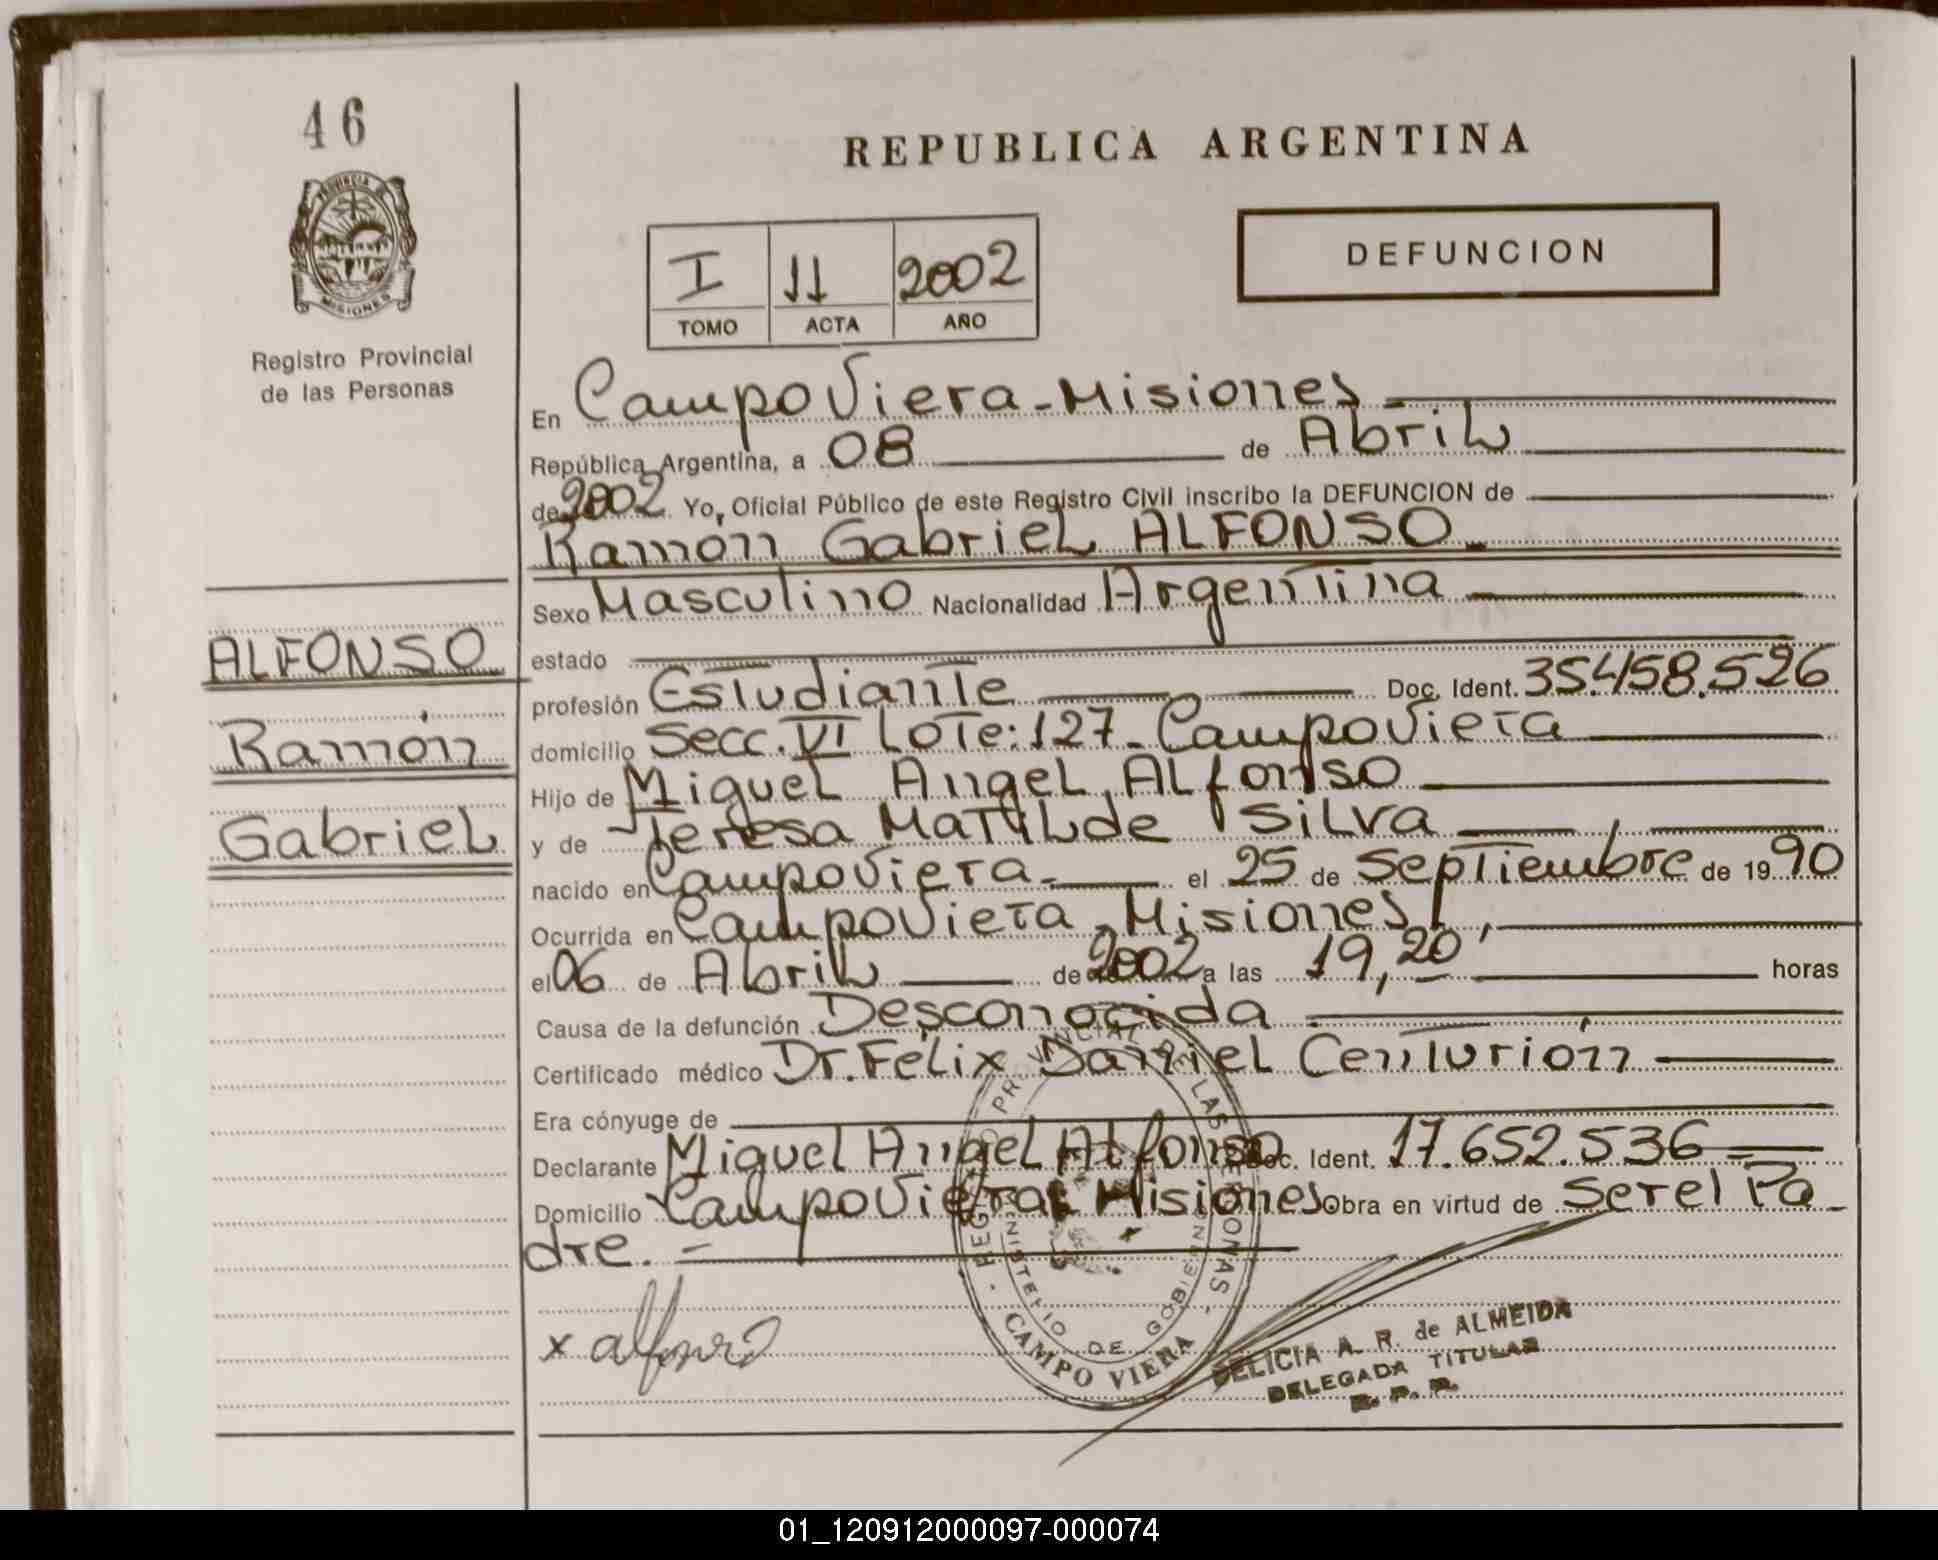 46
PROVINCIA DE
MISIONES
Registro Provincial
de las Personas
ALFONSO
Ramón
Gabriel
REPUBLICA ARGENTINA
I 11 2002
TOMO ACTA AÑO
DEFUNCION
En Campo Viera - Misiones
República Argentina, a 08 de Abril
de 2002 Yo, Oficial Público de este Registro Civil inscribo la DEFUNCION de
Ramon Gabriel ALFONSO.
Sexo Masculino Nacionalidad Argentina
estado
profesión Estudiante Doc. Ident. 35.458.526
domicilio Secc. VI Lote: 127 - Campo Viera
Hijo de Miguel Angel Alfonso
y de Teresa Matilde Silva
nacido en Campo Viera - el 25 de Septiembre de 1990
Ocurrida en Campo Viera, Misiones,
el 06 de Abril de 2002 a las 19,20 horas
Causa de la defunción Desconocida
Certificado médico Dr. Félix Daniel Centurión
Era cónyuge de
Declarante Miguel Angel Alfonso Doc. Ident. 17.652.536
Domicilio Campo Viera Misiones Obra en virtud de Ser el Pa-
dre. -
x alfonso
REGISTRO PROVINCIAL DE LAS PERSONAS
MINISTERIO DE GOBIERNO
CAMPO VIERA
DELICIA A. R. de ALMEIDA
DELEGADA TITULAR
R. P. P.
01_120912000097-000074